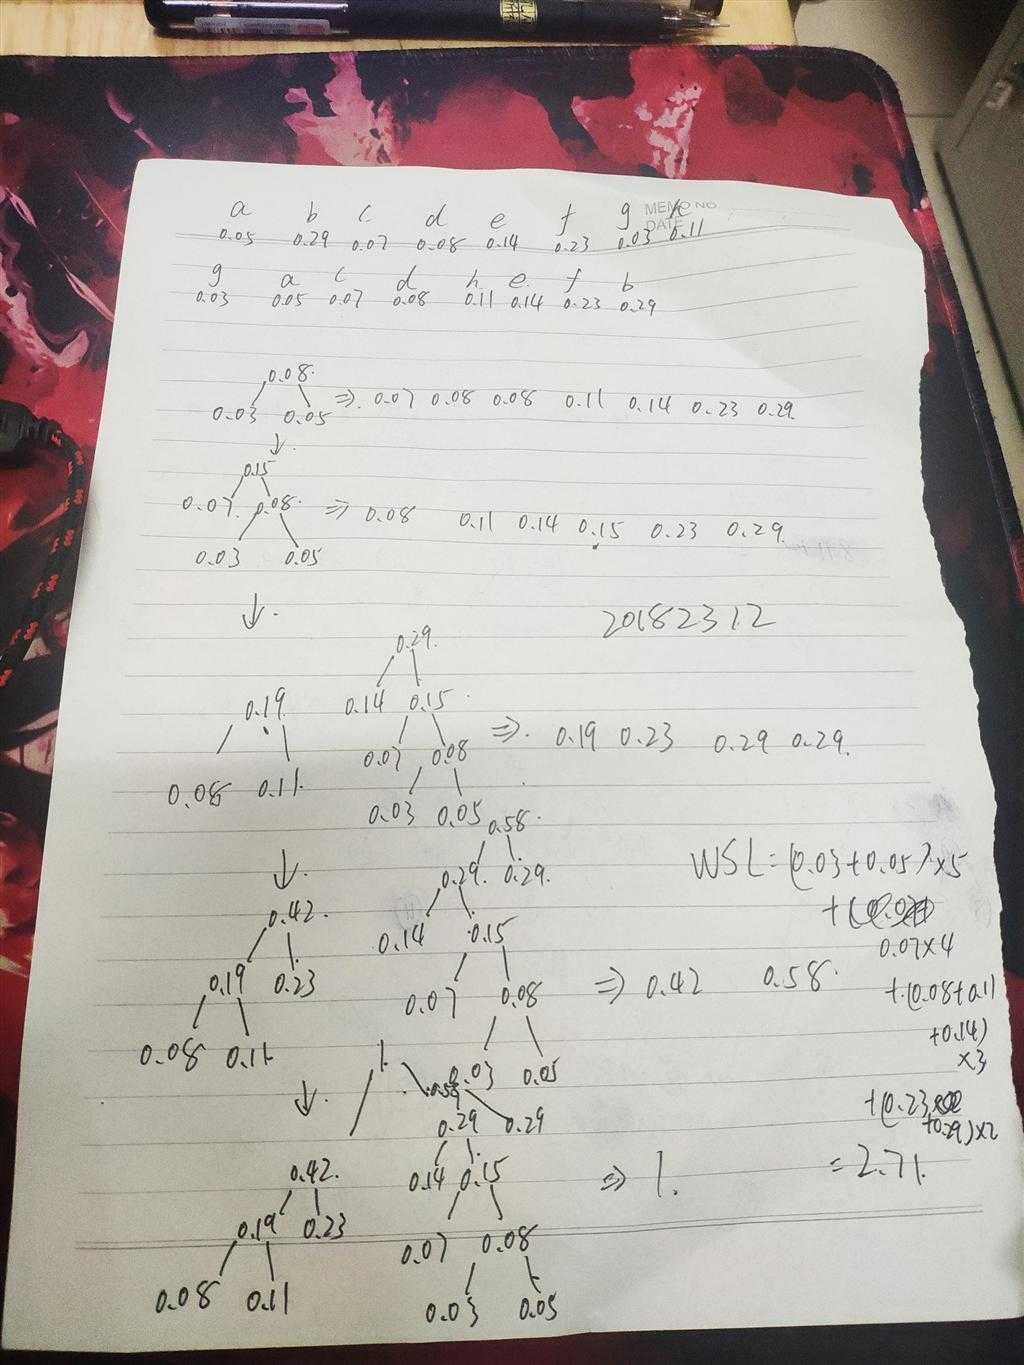 a b c d e f g h
MEMO NO
DATE
0.05 0.29 0.07 0.08 0.14 0.23 0.03 0.11
g a c d h e f b
0.03 0.05 0.07 0.08 0.11 0.14 0.23 0.29
0.08
0.03 0.05 => 0.07 0.08 0.08 0.11 0.14 0.23 0.29
↓
0.15
0.07 0.08 => 0.08 0.11 0.14 0.15 0.23 0.29
0.03 0.05
↓
20182312
0.29
0.19 0.14 0.15
0.07 0.08 => 0.19 0.23 0.29 0.29
0.08 0.11
0.03 0.05
0.58
↓ 0.29 0.29
0.42 0.14 0.15
0.19 0.23 0.07 0.08 => 0.42 0.58
0.08 0.11 0.03 0.05
WSL=(0.03+0.05)×5
+
0.07×4
+(0.08+0.11
+0.14)
×3
+(0.23
+0.29)×2
=2.71
↓
1.
0.58
0.29 0.29
0.42 0.14 0.15 => 1.
0.19 0.23 0.07 0.08
0.08 0.11 0.03 0.05